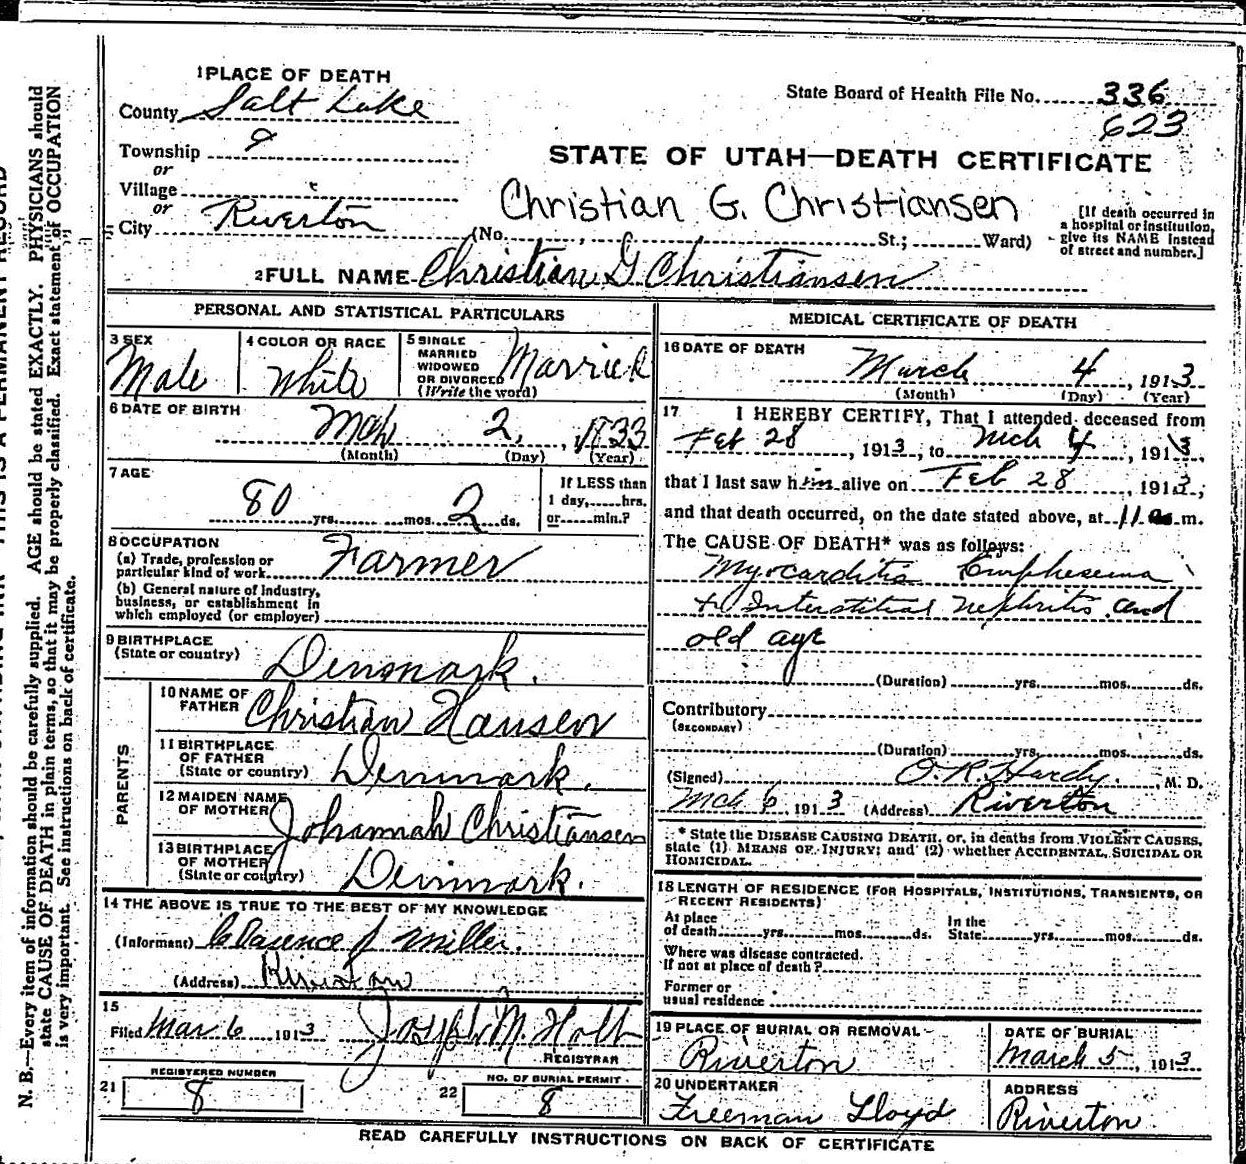 1 PLACE OF DEATH
County Salt Lake
Township 9
or
Village
or
City Riverton
State Board of Health File No. 336
623
STATE OF UTAH—DEATH CERTIFICATE
Christian G. Christiansen
(No. St.; Ward)
[If death occurred in
a hospital or institution,
give its NAME instead
of street and number.]
2 FULL NAME Christian G Christiansen
PERSONAL AND STATISTICAL PARTICULARS
3 SEX
Male
4 COLOR OR RACE
White
5 SINGLE
MARRIED
WIDOWED
OR DIVORCED
(Write the word)
Married
6 DATE OF BIRTH
Mch 2, 1833
(Month) (Day) (Year)
7 AGE
80 yrs. mos. 2 ds.
If LESS than
1 day, hrs.
or min.?
8 OCCUPATION
(a) Trade, profession or
particular kind of work
Farmer
(b) General nature of industry,
business, or establishment in
which employed (or employer)
9 BIRTHPLACE
(State or country)
Denmark.
PARENTS
10 NAME OF
FATHER
Christian Hansen
11 BIRTHPLACE
OF FATHER
(State or country)
Denmark.
12 MAIDEN NAME
OF MOTHER
Johannah Christiansen
13 BIRTHPLACE
OF MOTHER
(State or country)
Denmark.
14 THE ABOVE IS TRUE TO THE BEST OF MY KNOWLEDGE
(Informant) Clarence J Miller.
(Address) Riverton
15
Filed Mar 6 1913 Joseph M. Holt
REGISTRAR
21
REGISTERED NUMBER
8
22
NO. OF BURIAL PERMIT
8
MEDICAL CERTIFICATE OF DEATH
16 DATE OF DEATH
March 4, 1913
(Month) (Day) (Year)
17 I HEREBY CERTIFY, That I attended deceased from
Feb 28, 1913, to Mch 4, 1913,
that I last saw him alive on Feb 28, 1913;
and that death occurred, on the date stated above, at 11 a m.
The CAUSE OF DEATH* was as follows:
Myocarditis Emphesema
+ Interstitial nephritis and
old age
(Duration) yrs. mos. ds.
Contributory
(SECONDARY)
(Duration) yrs. mos. ds.
(Signed) O. R. Hardy. , M. D.
Mch 6 1913 (Address) Riverton
* State the DISEASE CAUSING DEATH, or, in deaths from VIOLENT CAUSES,
state (1) MEANS OF INJURY; and (2) whether ACCIDENTAL, SUICIDAL OR
HOMICIDAL.
18 LENGTH OF RESIDENCE (FOR HOSPITALS, INSTITUTIONS, TRANSIENTS, OR
RECENT RESIDENTS)
At place
of death yrs. mos. ds.
In the
State yrs. mos. ds.
Where was disease contracted.
If not at place of death?
Former or
usual residence
19 PLACE OF BURIAL OR REMOVAL
Riverton
DATE OF BURIAL
March 5, 1913
20 UNDERTAKER
Freeman Lloyd
ADDRESS
Riverton.
READ CAREFULLY INSTRUCTIONS ON BACK OF CERTIFICATE
N. B.—Every item of information should be carefully supplied. AGE should be stated EXACTLY. PHYSICIANS should
state CAUSE OF DEATH in plain terms, so that it may be properly classified. Exact statement of OCCUPATION
is very important. See instructions on back of certificate.